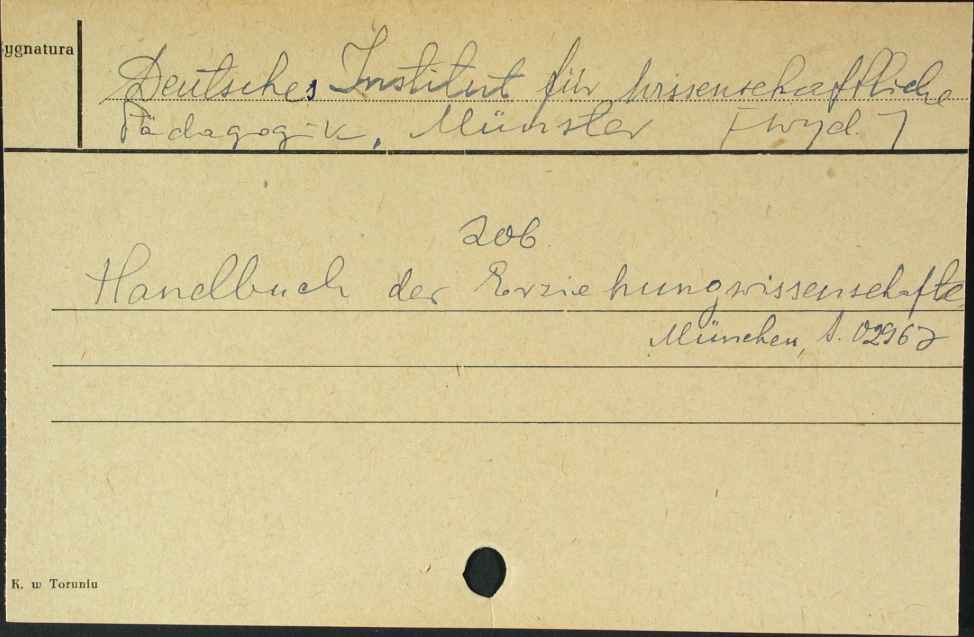 ygnatura
Deutsches Institut für wissenschaftliche
Pädagogik, Münster [wyd.]
zob.
Handbuch der Erziehungswissenschafte
München,
K. w Toruniu